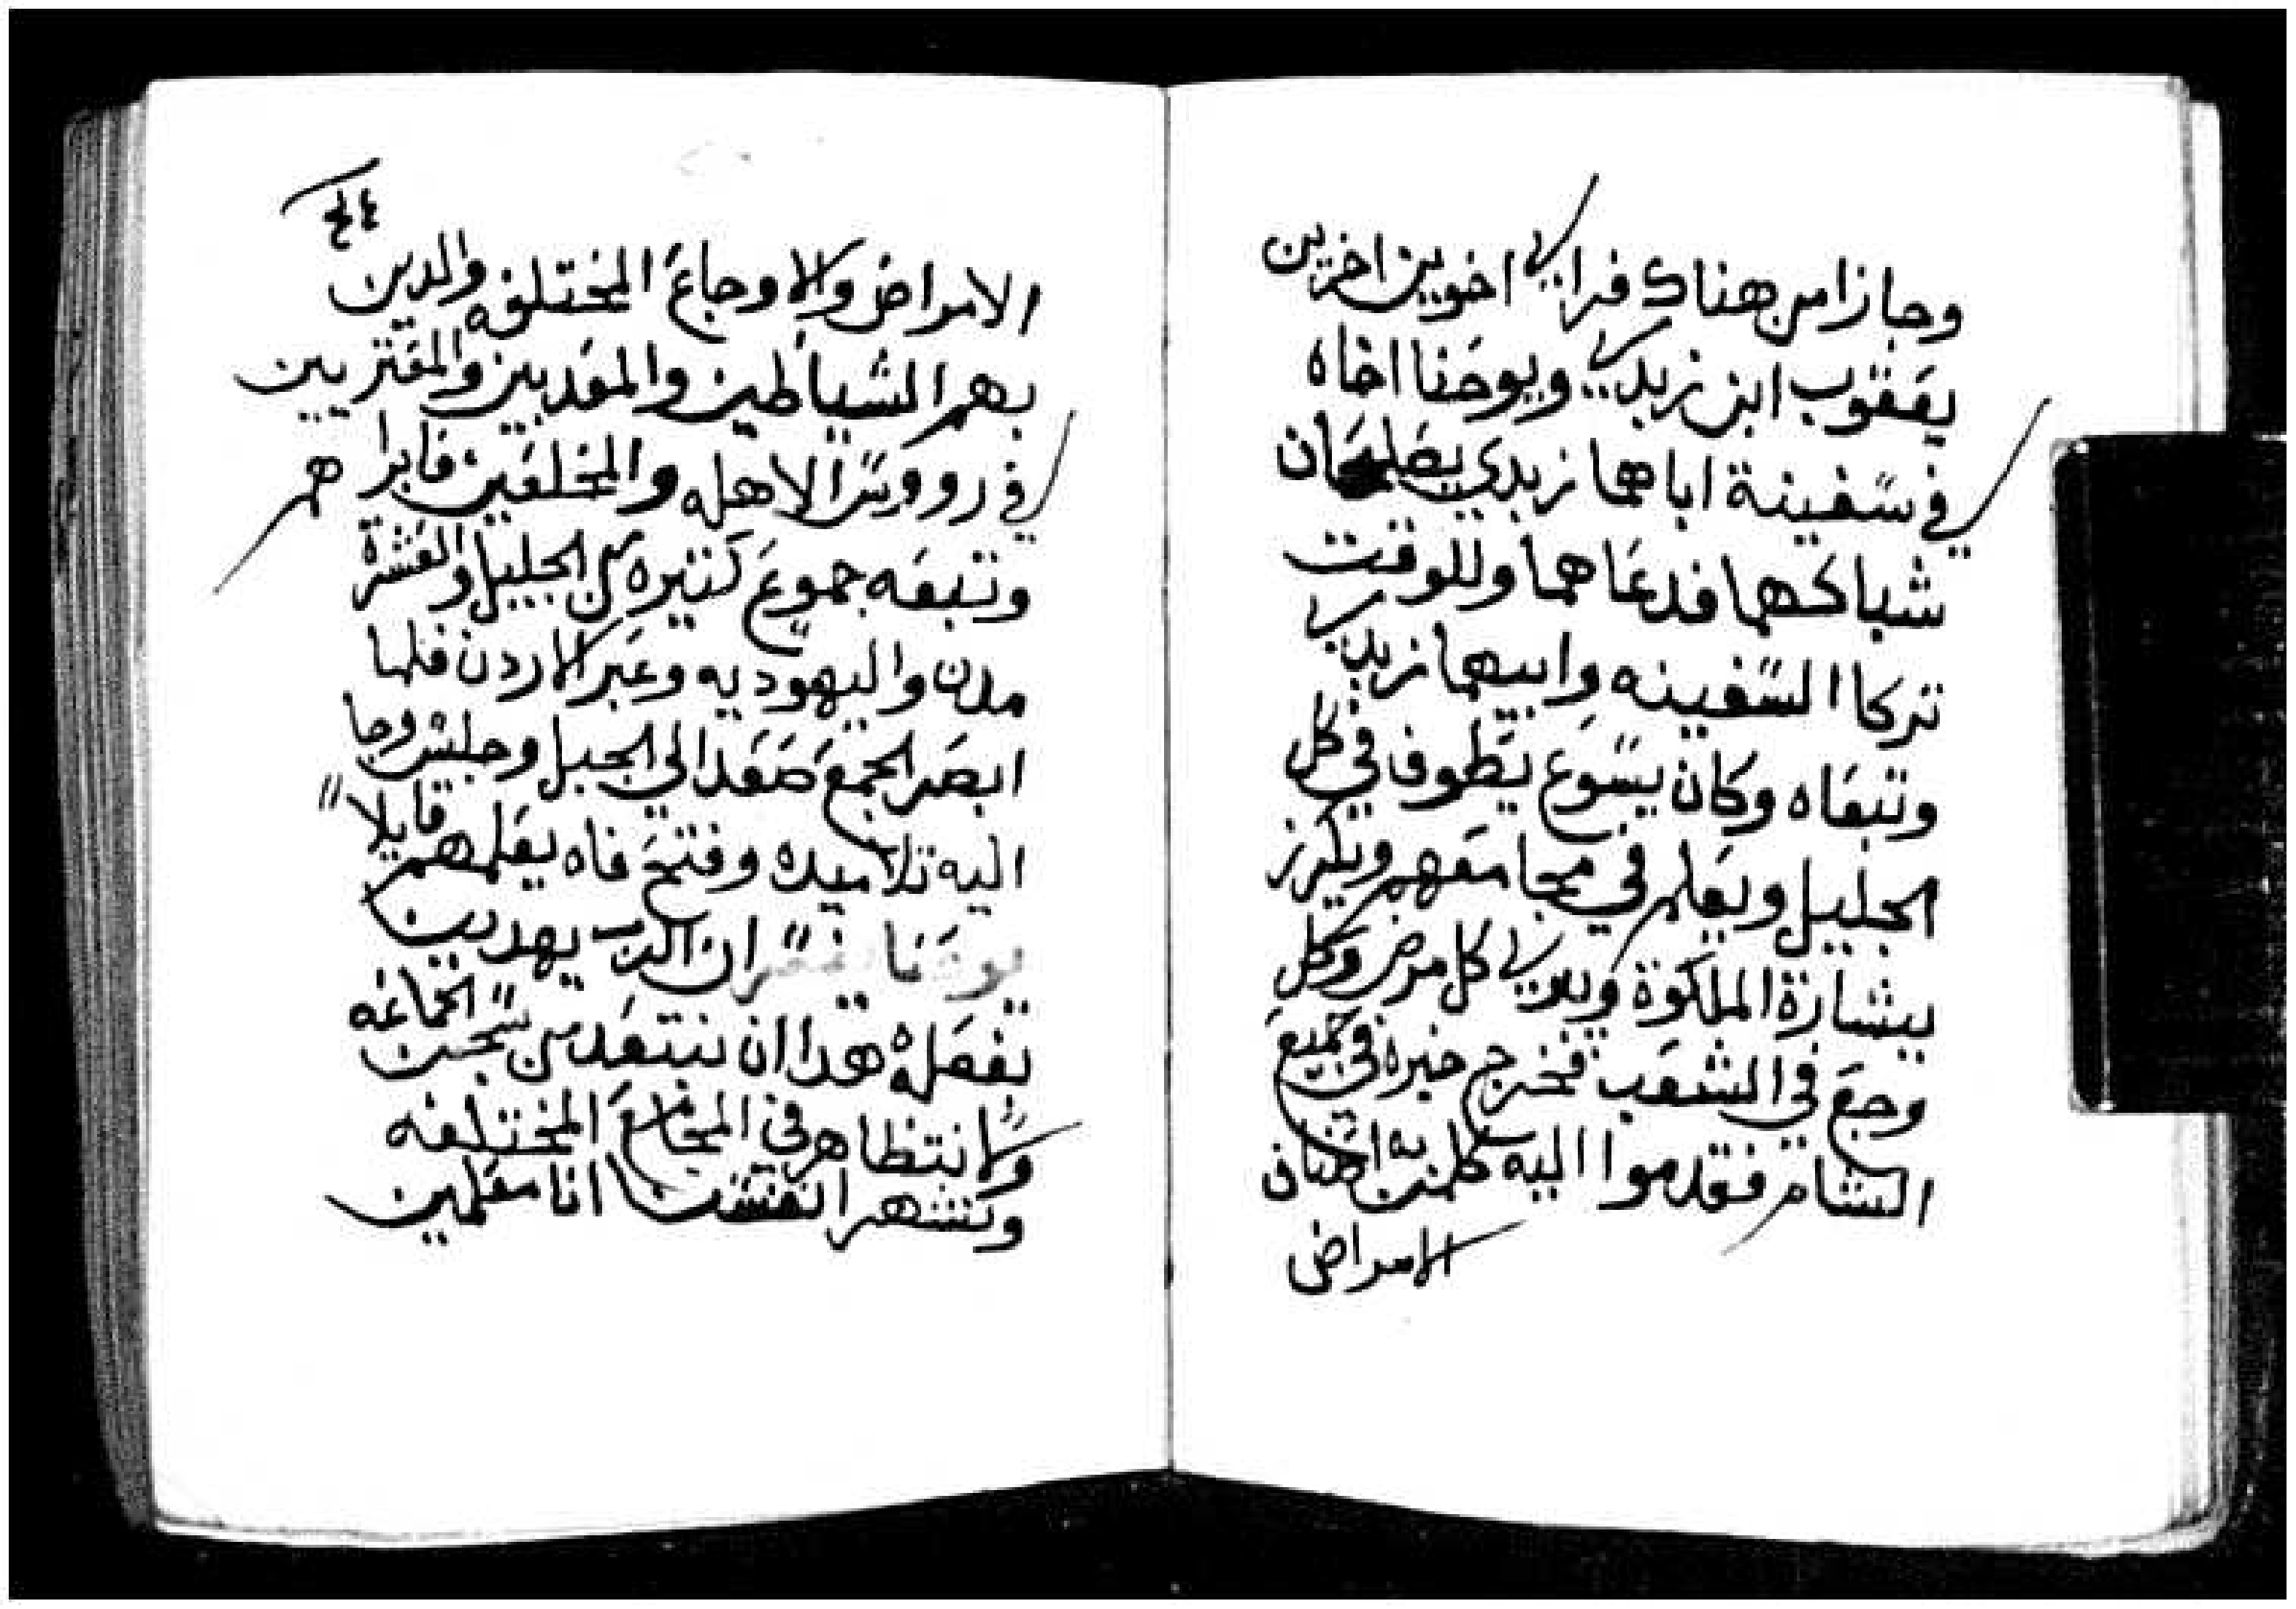 وجاز من هناك فراى اخوين اخرين
يعقوب ابن زبدي ويوحنا اخاه
في سفينة اباهما زبدي يصلحان
شباكهما فدعاهما وللوقت
تركا السفينه وابيهما زبدي
وتبعاه وكان يسوع يطوف في كل
الجليل ويعلم في مجامعهم ويكرز
ببشارة الملكوة ويبري كل مرض وكل
وجع في الشعب فخرج خبره في جميع
الشام فقدموا اليه كلمن به اصناف
الامراض
٤٤
الامراض والاوجاع المختلفه والدين
بهم الشياطين والمعدبين والمعتريين
في رووس الاهله والمخلعين فابراهم
وتبعه جموع كتيره من الجليل والعشرة
مدن واليهوديه وعبر الاردن فلما
ابصر الجمع صعد الى الجبل وجلس وجا
اليه تلاميده وفتح فاه يعلمهم قايلا
ان الدي يهدين
تفصله هدا ان نبتعد من سجس الجماعه
ولا نتظاهر في المجامع المختلفه
ونشهر انفسنا اننا معلمين